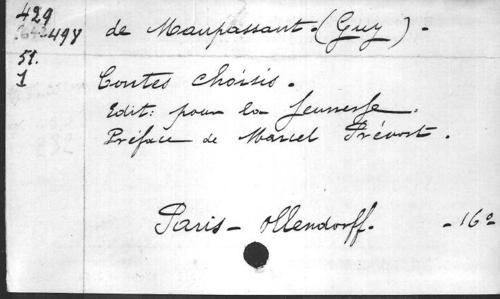 429
498 de Maupassant. (Guy).
51.
1 Contes choisis.
Edit: pour la Jeunesse.
Préface de Marcel Prévost.
Paris - Ollendorff. - 16º